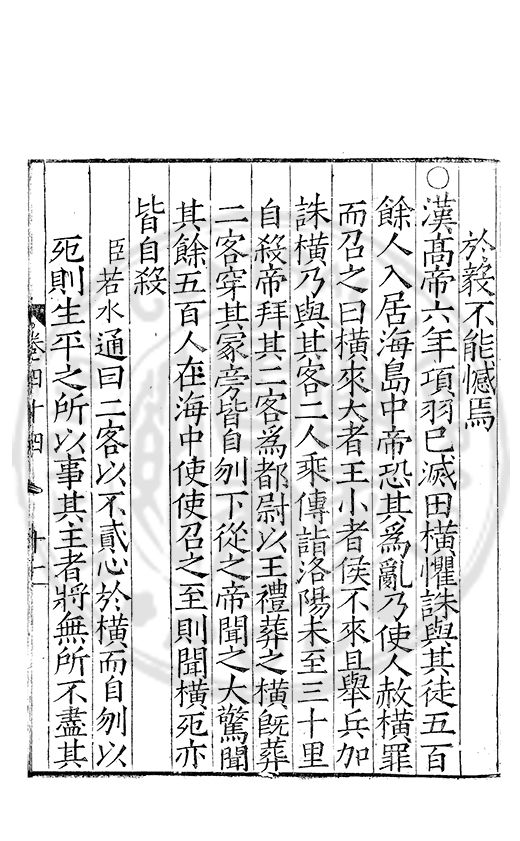 於毅不能憾焉
○漢高帝六年項羽已滅田橫懼誅與其徒五百
餘人入居海島中帝恐其爲亂乃使人赦橫罪
而召之曰橫來大者王小者侯不來且舉兵加
誅橫乃與其客二人乘傳詣洛陽未至三十里
自殺帝拜其二客爲都尉以王禮葬之橫旣葬
二客穿其冢旁皆自刎下從之帝聞之大驚聞
其餘五百人在海中使使召之至則聞橫死亦
皆自殺
臣若水通曰二客以不貳心於橫而自刎以
死則生平之所以事其主者將無所不盡其
卷四十四 十一